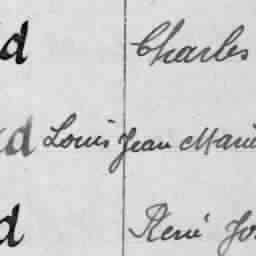 d Charles
d Louis Jean Marie
d René